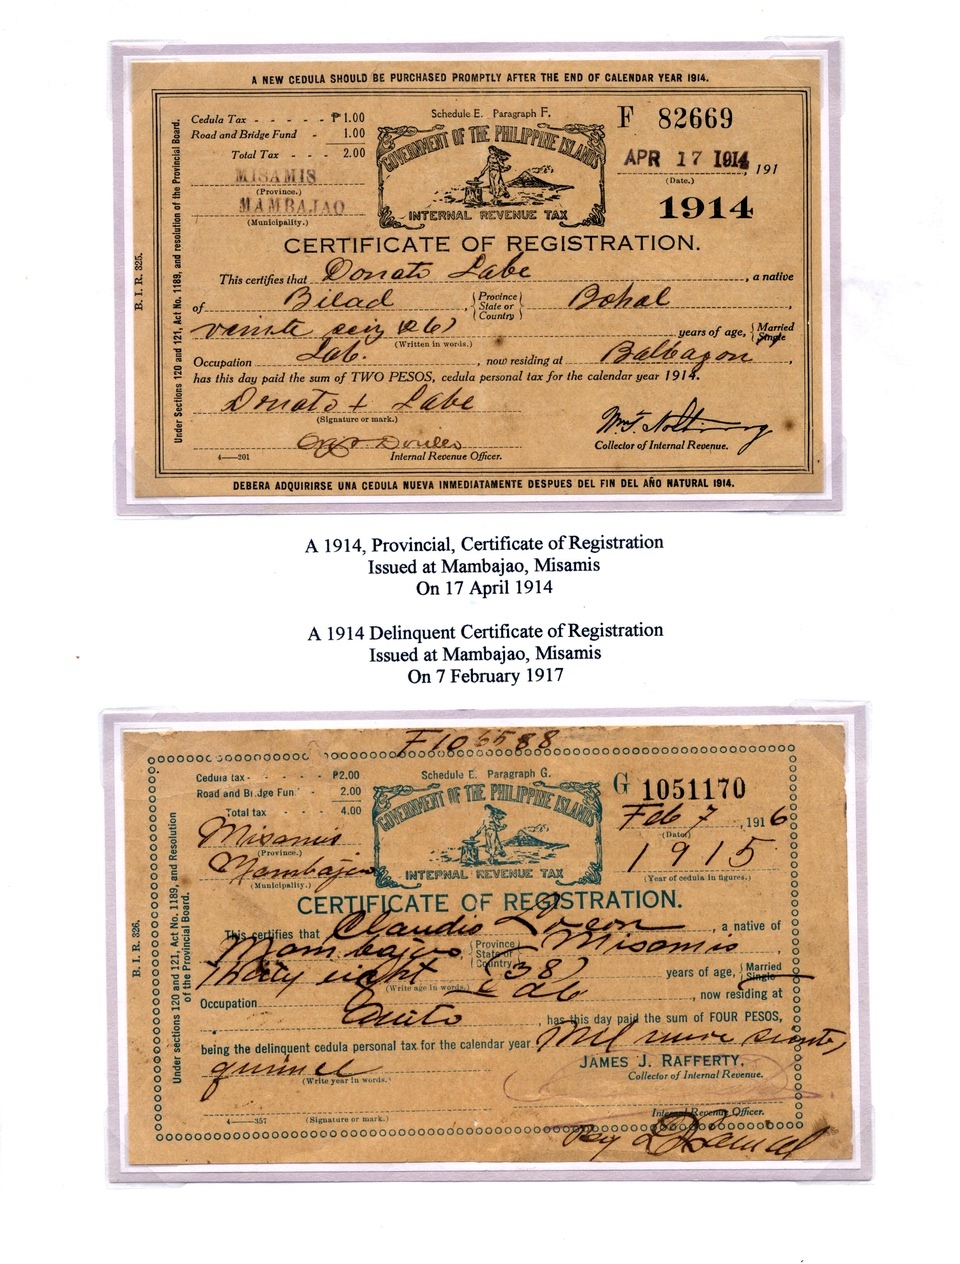 A NEW CEDULA SHOULD BE PURCHASED PROMPTLY AFTER THE END OF CALENDAR YEAR 1914.
Cedula Tax - - - - - ₱1.00
Road and Bridge Fund - 1.00
Total Tax - - - 2.00
MISAMIS
(Province.)
MAMBAJAO
(Municipality.)
Schedule E. Paragraph F.
GOVERNMENT OF THE PHILIPPINE ISLANDS
INTERNAL REVENUE TAX
F 82669
APR 17 1914, 191
(Date.)
1914
B. I. R. 325.
Under Sections 120 and 121, Act No. 1189, and resolution of the Provincial Board.
CERTIFICATE OF REGISTRATION.
This certifies that Donato Labe, a native
of Bilad { Province State or Country } Bohol,
veinte seiz (26) years of age, { Married Single
(Written in words.)
Occupation Lab., now residing at Balbagon,
has this day paid the sum of TWO PESOS, cedula personal tax for the calendar year 1914.
Donato + Labe
(Signature or mark.)
4—201
Internal Revenue Officer.
Collector of Internal Revenue.
DEBERA ADQUIRIRSE UNA CEDULA NUEVA INMEDIATAMENTE DESPUES DEL FIN DEL AÑO NATURAL 1914.
A 1914, Provincial, Certificate of Registration
Issued at Mambajao, Misamis
On 17 April 1914
A 1914 Delinquent Certificate of Registration
Issued at Mambajao, Misamis
On 7 February 1917
F106588
Cedula tax - - - - - ₱2.00
Road and Bridge Fun - 2.00
Total tax - - - 4.00
Misamis
(Province.)
Mambajao
(Municipality.)
Schedule E. Paragraph G.
GOVERNMENT OF THE PHILIPPINE ISLANDS
INTERNAL REVENUE TAX
G 1051170
Feb 7, 1916
(Date)
1915
(Year of cedula in figures.)
B. I. R. 326.
Under sections 120 and 121, Act No. 1189, and Resolution of the Provincial Board.
CERTIFICATE OF REGISTRATION.
This certifies that Claudio, a native of
Mambajao { Province State or Country } Misamis
thirty eight (38) years of age, { Married Single
(Write age in words.)
Occupation Lab, now residing at
, has this day paid the sum of FOUR PESOS,
being the delinquent cedula personal tax for the calendar year Mil
quince
(Write year in words.)
JAMES J. RAFFERTY,
Collector of Internal Revenue.
4—357
(Signature or mark.)
Internal Revenue Officer.